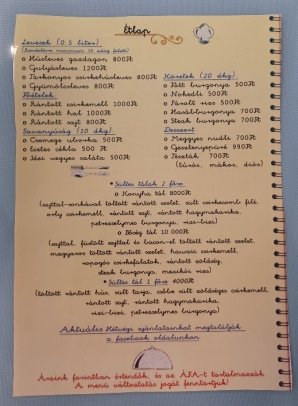 Étlap
Levesek (0,5 liter):
(Rendelés minimum 10 adag felett)
○ Húsleves gazdagon 800Ft
○ Gulyásleves 1200Ft
○ Tárkonyos csirkehúsleves 800Ft
○ Gyümölcsleves 800Ft
Főételek
○ Rántott csirkemell 1000Ft
○ Rántott hal 1000Ft
○ Rántott sajt 800Ft
Savanyúság (10 dkg):
○ Csemege uborka 500Ft
○ Ecetes cékla 500 Ft
○ Idei vegyes saláta 500Ft
Köretek (20 dkg):
○ Főtt burgonya 500Ft
○ Nokedli 500Ft
○ Párolt rizs 500Ft
○ Hasábburgonya 700Ft
○ Steak burgonya 700Ft
Desszert:
○ Meggyes nudli 700Ft
○ Gesztenyepüré 990Ft
○ Tészták 700Ft
(túrós, mákos, diós)
• Sültes tálak 2 főre:
○ Konyha tál 8000Ft
(sajttal-sonkával töltött rántott szelet, sült csirkecomb filé,
rántott sajt, rántott hagymakarika,
petrezselymes burgonya, rizi-bizi)
○ Bőség tál 10.000Ft
(sajttal, füstölt sajttal és bacon-el töltött rántott szelet,
magyaros töltött rántott szelet, hawaii csirkemell,
ropogós csirkefalatok, rántott zöldség,
steak burgonya, mexikói rizs)
• Sültes tál 1 főre 4000Ft
(töltött rántott hús, sült tarja, csőbe sült zöldséges csirkemell,
rántott sajt, rántott hagymakarika,
rizi-bizi, petrezselymes burgonya)
Aktuális Hétvégi ajánlatainkat megtalálják
a facebook oldalunkon
Áraink forintban értendők, és az ÁFA-t tartalmazzák.
A menü változtatás jogát fenntartjuk!